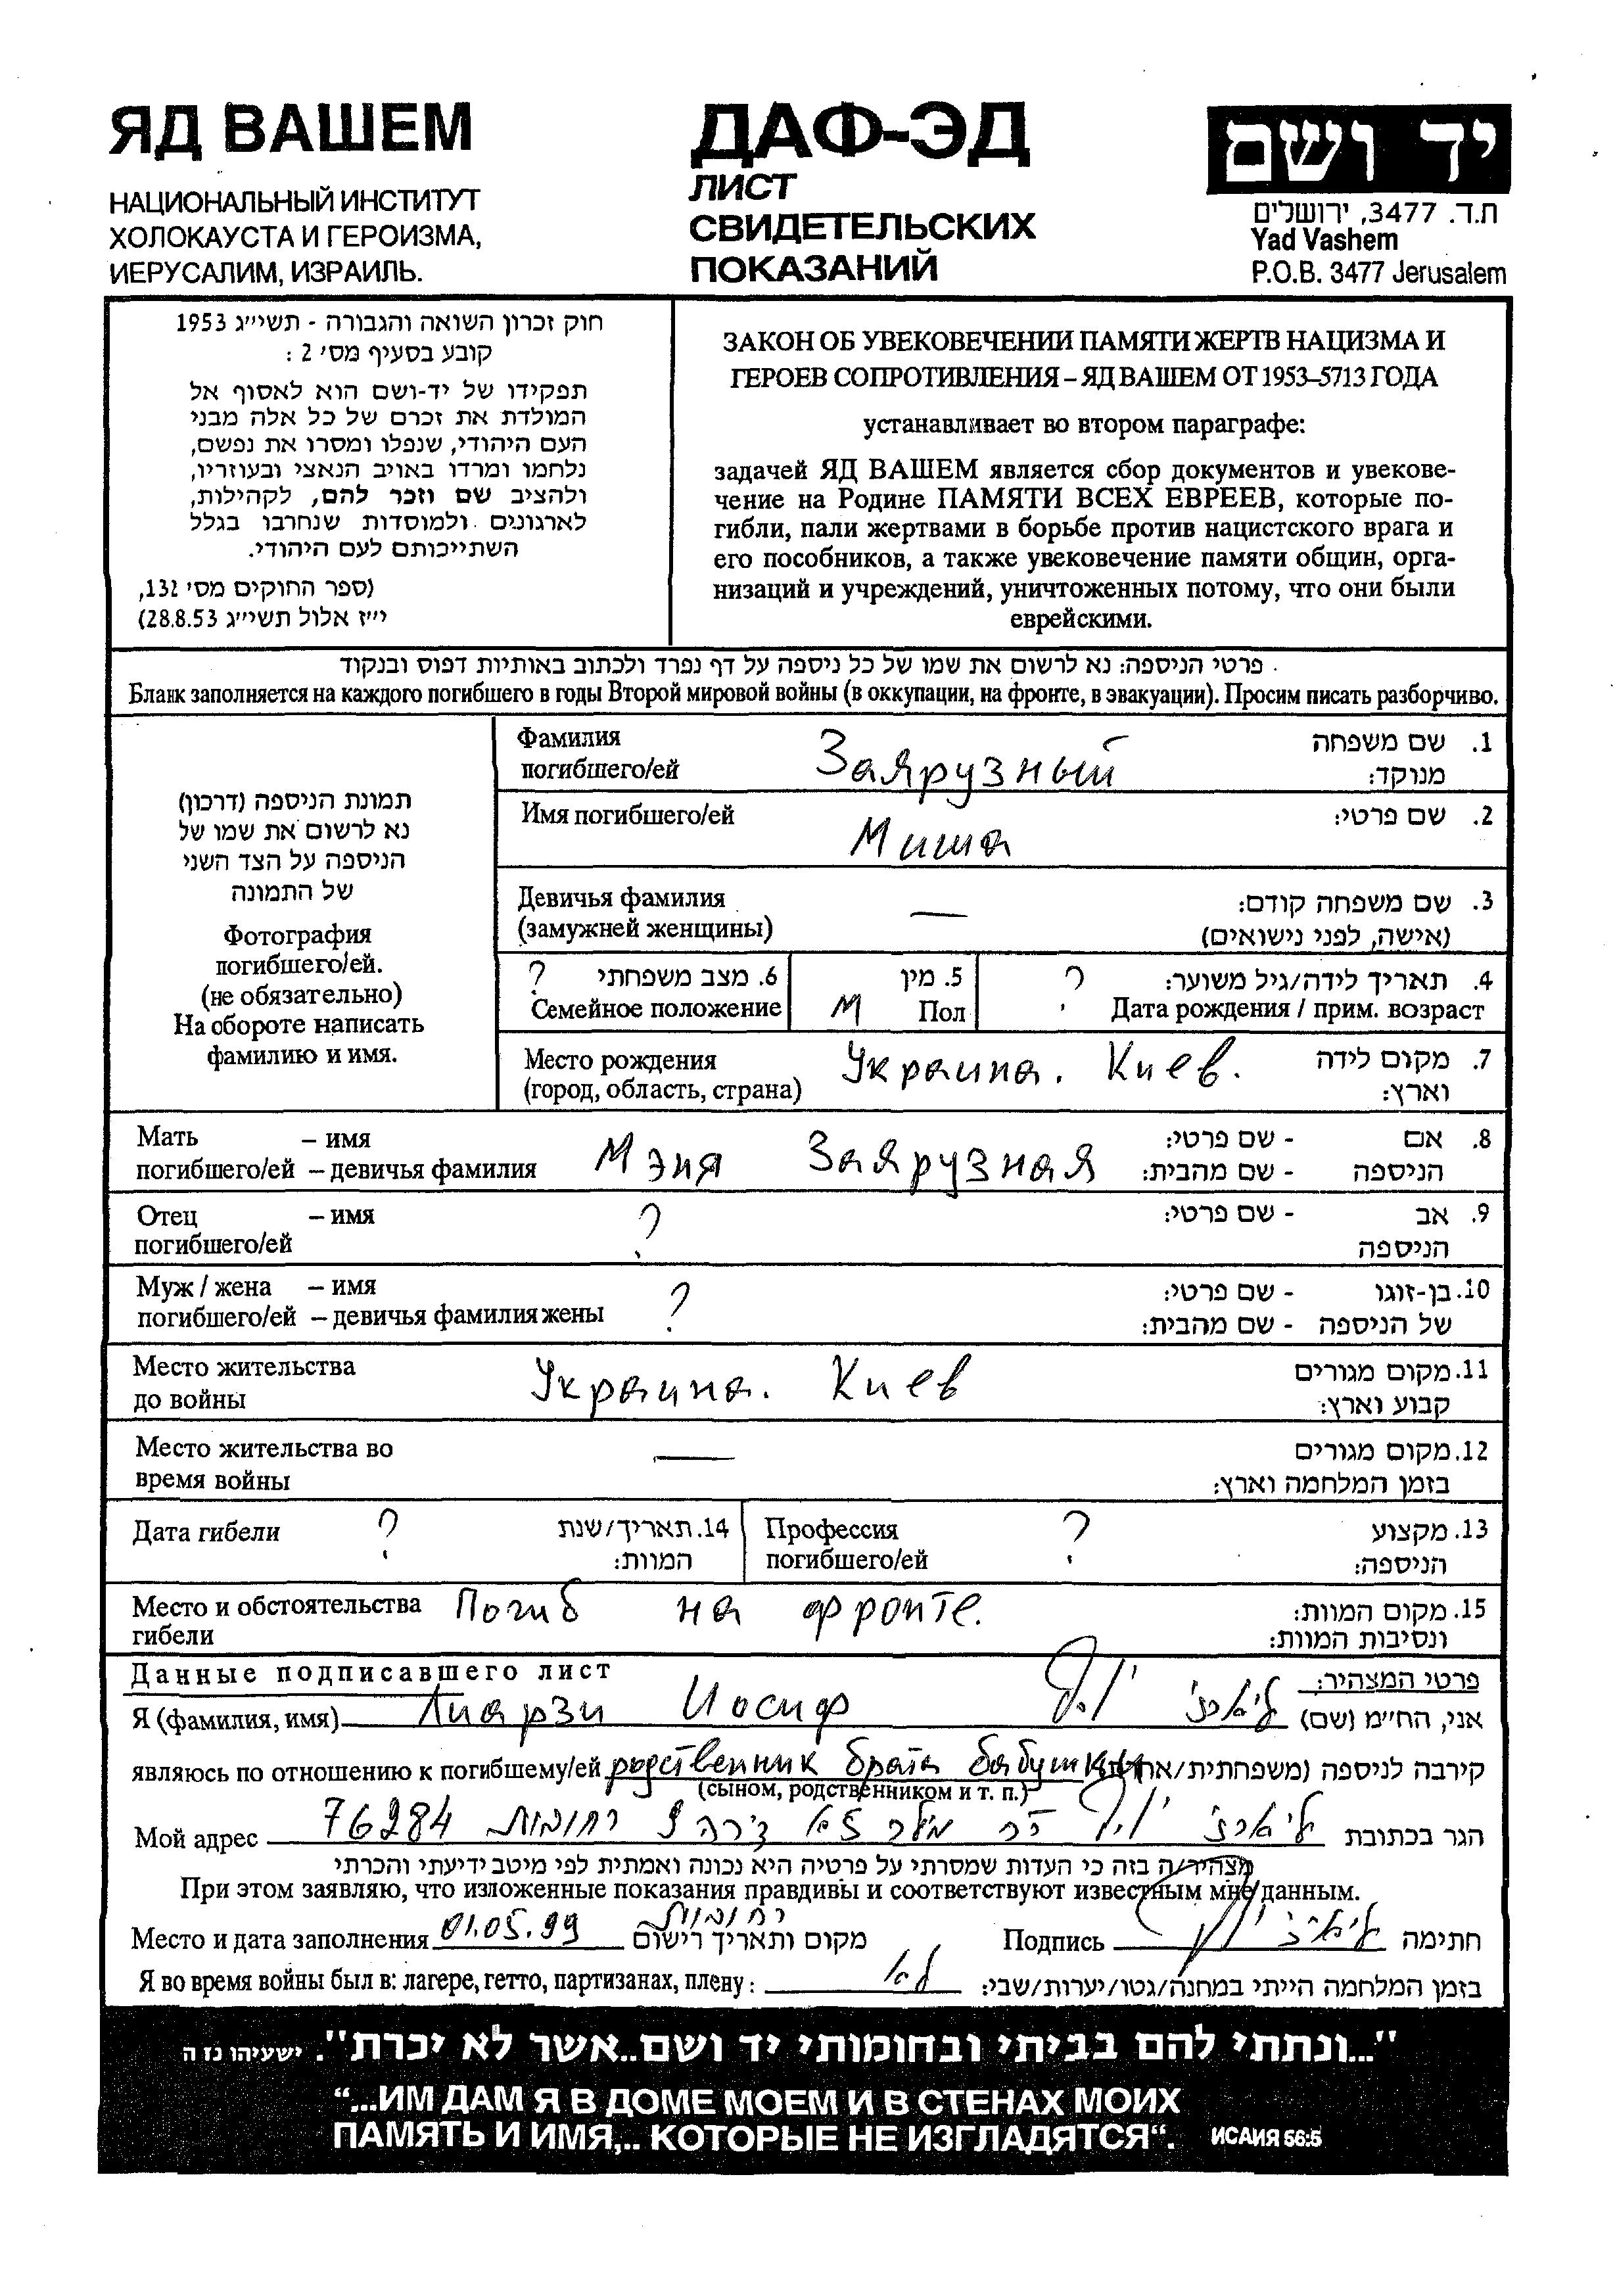 ЯД ВАШЕМ
НАЦИОНАЛЬНЫЙ ИНСТИТУТ
ХОЛОКАУСТА И ГЕРОИЗМА,
ИЕРУСАЛИМ, ИЗРАИЛЬ.
ДАФ-ЭД
ЛИСТ
СВИДЕТЕЛЬСКИХ
ПОКАЗАНИЙ
יד ושם
ת.ד. 3477, ירושלים
Yad Vashem
P.O.B. 3477 Jerusalem
חוק זכרון השואה והגבורה - תשי״ג 1953
קובע בסעיף מס׳ 2 :
תפקידו של יד-ושם הוא לאסוף אל
המולדת את זכרם של כל אלה מבני
העם היהודי, שנפלו ומסרו את נפשם,
נלחמו ומרדו באויב הנאצי ובעוזריו,
ולהציב שם וזכר להם, לקהילות,
לארגונים ולמוסדות שנחרבו בגלל
השתייכותם לעם היהודי.
(ספר החוקים מס׳ 132,
י״ז אלול תשי״ג 28.8.53)
ЗАКОН ОБ УВЕКОВЕЧЕНИИ ПАМЯТИ ЖЕРТВ НАЦИЗМА И
ГЕРОЕВ СОПРОТИВЛЕНИЯ – ЯД ВАШЕМ ОТ 1953–5713 ГОДА
устанавливает во втором параграфе:
задачей ЯД ВАШЕМ является сбор документов и увекове-
чение на Родине ПАМЯТИ ВСЕХ ЕВРЕЕВ, которые по-
гибли, пали жертвами в борьбе против нацистского врага и
его пособников, а также увековечение памяти общин, орга-
низаций и учреждений, уничтоженных потому, что они были
еврейскими.
פרטי הניספה: נא לרשום את שמו של כל ניספה על דף נפרד ולכתוב באותיות דפוס ובנקוד
Бланк заполняется на каждого погибшего в годы Второй мировой войны (в оккупации, на фронте, в эвакуации). Просим писать разборчиво.
תמונת הניספה (דרכון)
נא לרשום את שמו של
הניספה על הצד השני
של התמונה
Фотография
погибшего/ей.
(не обязательно)
На обороте написать
фамилию и имя.
Фамилия Заярузный 1. שם משפחה
погибшего/ей מנוקד:
Имя погибшего/ей Миша 2. שם פרטי:
Девичья фамилия — 3. שם משפחה קודם:
(замужней женщины) (אישה, לפני נישואים)
? 6. מצב משפחתי 5. מין ? 4. תאריך לידה/גיל משוער:
Семейное положение М Пол Дата рождения / прим. возраст
Место рождения Украина. Киев. 7. מקום לידה
(город, область, страна) וארץ:
Мать – имя 8. אם - שם פרטי:
погибшего/ей – девичья фамилия Мэня Заярузная הניספה - שם מהבית:
Отец – имя ? 9. אב - שם פרטי:
погибшего/ей הניספה
Муж / жена – имя ? 10. בן-זוגו - שם פרטי:
погибшего/ей – девичья фамилия жены של הניספה - שם מהבית:
Место жительства Украина. Киев 11. מקום מגורים
до войны קבוע וארץ:
Место жительства во — 12. מקום מגורים
время войны בזמן המלחמה וארץ:
Дата гибели ? 14. תאריך/שנת Профессия ? 13. מקצוע
המוות: погибшего/ей הניספה:
Место и обстоятельства Погиб на фронте. 15. מקום המוות:
гибели ונסיבות המוות:
Данные подписавшего лист פרטי המצהיר:
Я (фамилия, имя) Лиарзи Иосиф ליארזי יוסף אני, החי״מ (שם)
являюсь по отношению к погибшему/ей родственник брата бабушки קירבה לניספה (משפחתית/
(сыном, родственником и т. п.)
Мой адрес ליארזי יוסף דירה 9 רחובות 76284 הגר בכתובת
מצהיר/ה בזה כי העדות שמסרתי על פרטיה היא נכונה ואמתית לפי מיטב ידיעתי והכרתי
При этом заявляю, что изложенные показания правдивы и соответствуют известным мне данным.
Место и дата заполнения 01.05.99 רחובות מקום ותאריך רישום Подпись ליארזי יוסף חתימה
Я во время войны был в: лагере, гетто, партизанах, плену: לא בזמן המלחמה הייתי במחנה/גטו/יערות/שבי:
"...ונתתי להם בביתי ובחומותי יד ושם..אשר לא יכרת". ישעיהו נו ה
“...ИМ ДАМ Я В ДОМЕ МОЕМ И В СТЕНАХ МОИХ
ПАМЯТЬ И ИМЯ,.. КОТОРЫЕ НЕ ИЗГЛАДЯТСЯ“. ИСАИЯ 56:5